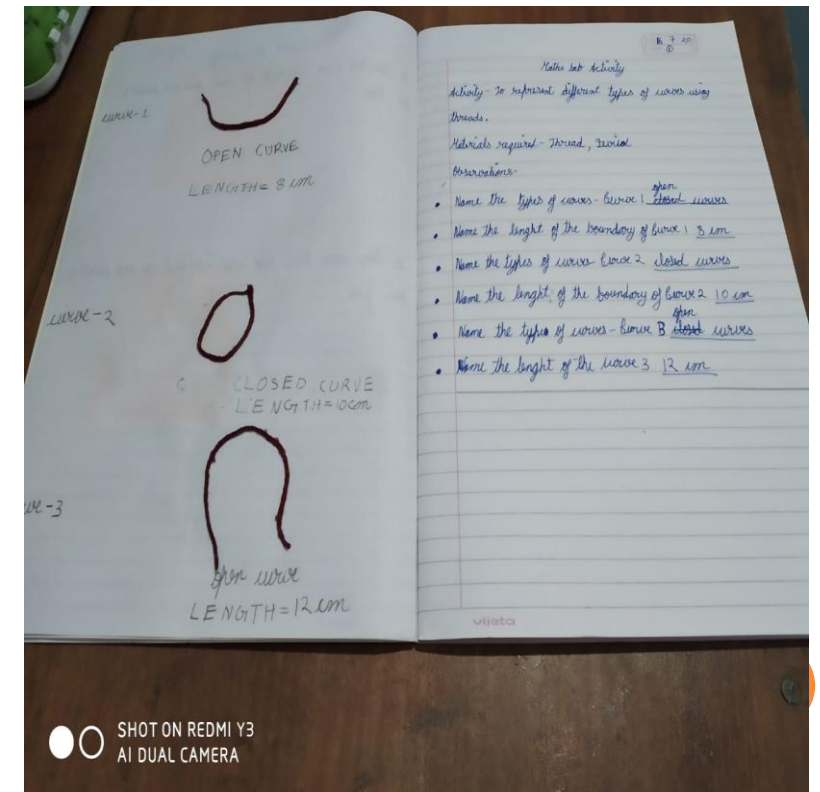 curve-1
OPEN CURVE
LENGTH = 8 cm
curve-2
CLOSED CURVE
LENGTH=10cm
ve-3
open curve
LENGTH=12 cm
16 7 20
Maths Lab Activity
Activity- To represent different types of curves using
threads.
Materials required- Thread,
Observations-
Name the types of curves- Curve 1 open closed curves
Name the lenght of the boundary of curve 1 8 cm
Name the types of curves Curve 2 closed curves
Name the lenght of the boundary of Curve 2 10 cm
Name the types of curves- Curve 3 open closed curves
Name the lenght of the curve 3 12 cm
vijeta
SHOT ON REDMI Y3
AI DUAL CAMERA